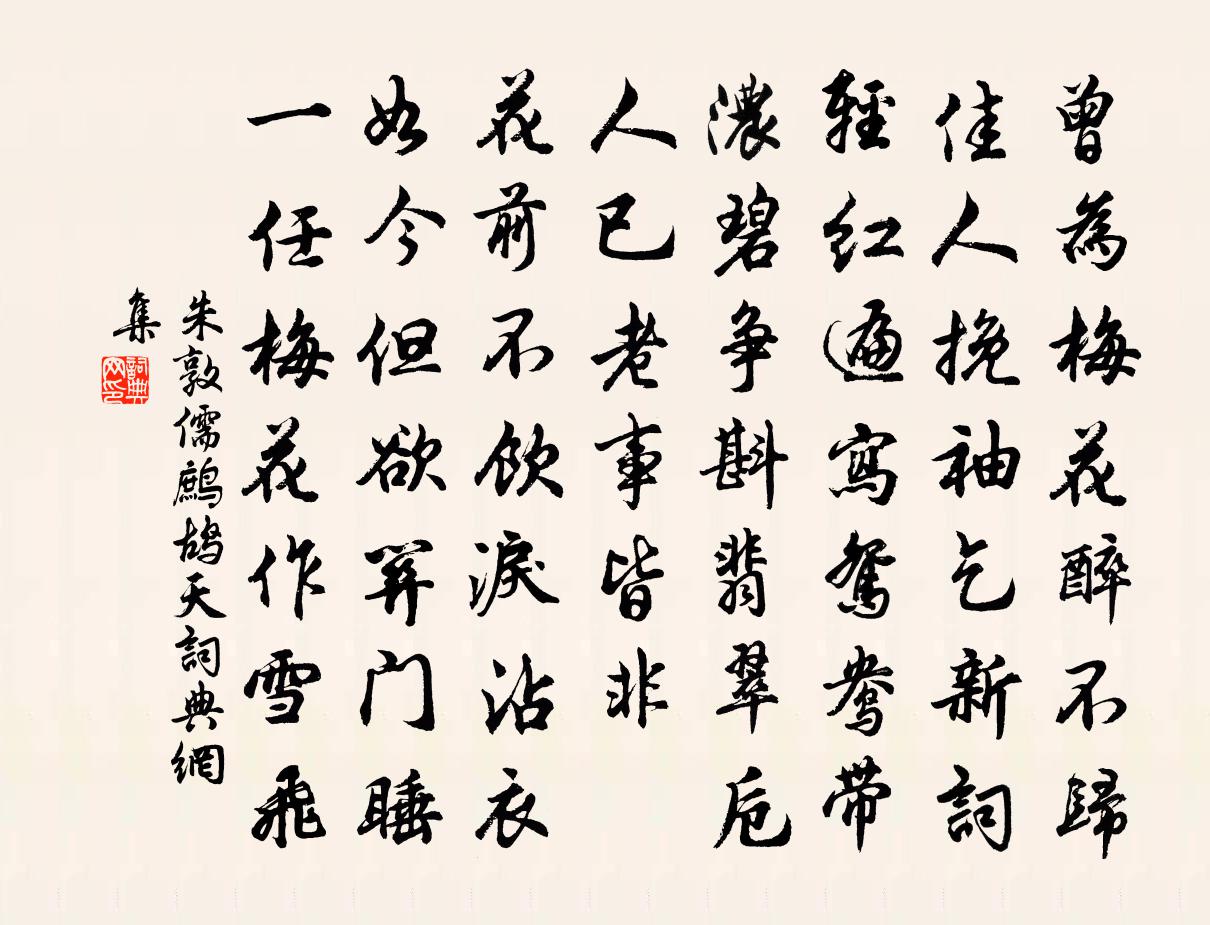 曾為梅花醉不歸
佳人挽袖乞新詞
輕紅遍寫鴛鴦帶
濃碧爭斟翡翠卮
人已老事皆非
花前不飲淚沾衣
如今但欲關門睡
一任梅花作雪飛
朱敦儒鷓鴣天詞典網
集
詞典
网印